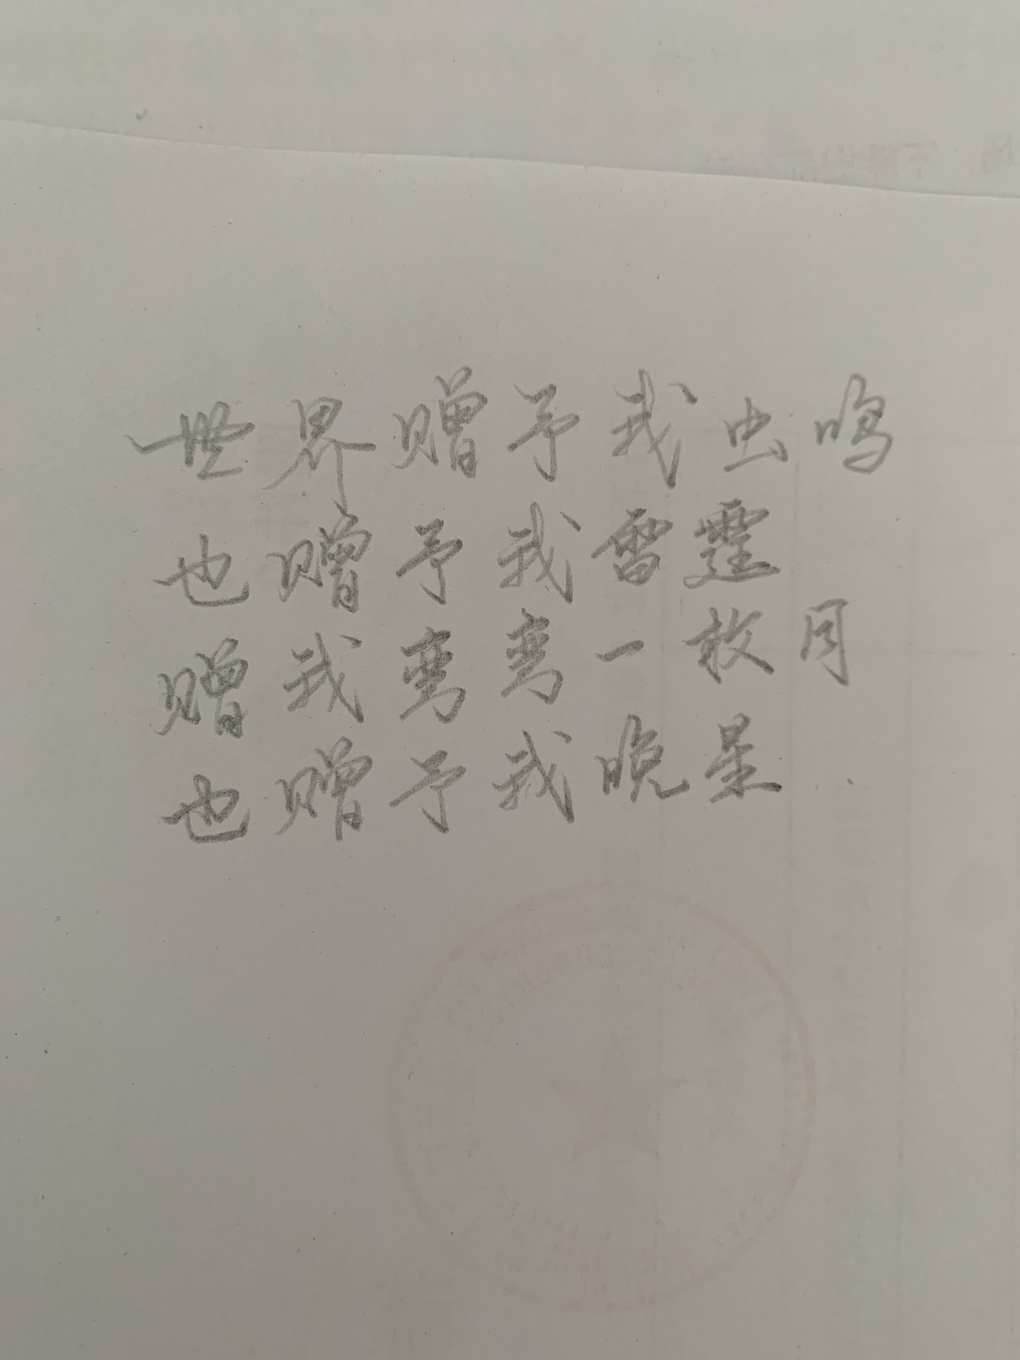 世界赠予我虫鸣
也赠予我雷霆
赠我弯弯一枚月
也赠予我晚星